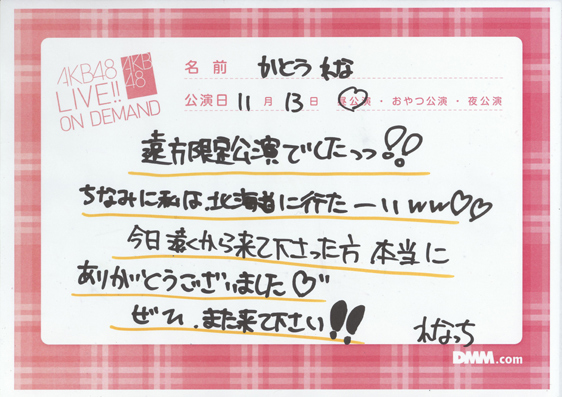 AKB48
LIVE!!
ON DEMAND
AKB
48
名前 かとう れな
公演日 11月 13日 昼公演・おやつ公演・夜公演
遠方限定公演でしたっっ!!
ちなみに私は、北海道に行たーいww♡♡
今日遠くから来て下さった方 本当に
ありがとうございました♡"
ぜひ、また来て下さい!!
れなっち
DMM.com